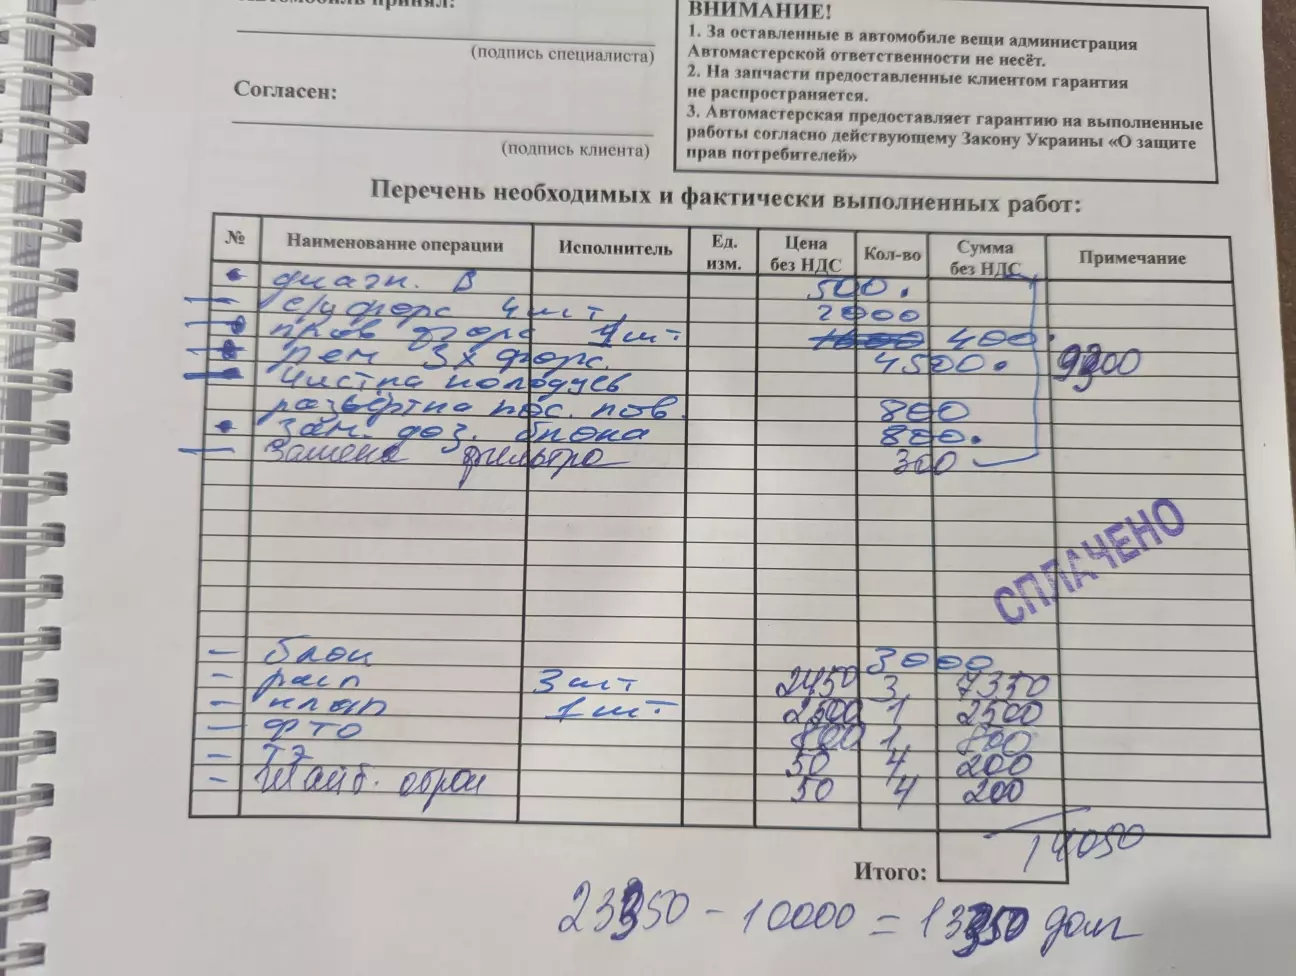 Автомобиль принял:
(подпись специалиста)
Согласен:
(подпись клиента)
ВНИМАНИЕ!
1. За оставленные в автомобиле вещи администрация
Автомастерской ответственности не несёт.
2. На запчасти предоставленные клиентом гарантия
не распространяется.
3. Автомастерская предоставляет гарантию на выполненные
работы согласно действующему Закону Украины «О защите
прав потребителей»
Перечень необходимых и фактически выполненных работ:
№ Наименование операции Исполнитель Ед. изм. Цена без НДС Кол-во Сумма без НДС Примечание
диагн. В 500.
с/у форс 4 шт, 2000
пров форс 4 шт. 400.
рем 3х форс. 4500.
чистка колодцев
развёртка пос. пов. 800
зам. доз. блока 800.
Замена фильтра 300
СПЛАЧЕНО
блок 3000
расп 3 шт 2450 3 7350
клап 1 шт. 2500 1 2500
фто 800 1 800
ТЭ 50 4 200
Шайб. обрат 50 4 200
14050
Итого:
- 10000 = долг